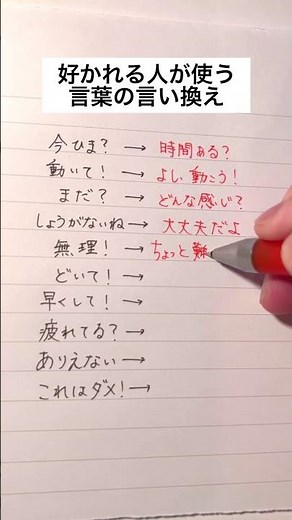 好かれる人が使う
言葉の言い換え
今ひま？ → 時間ある？
動いて！ → よし動こう！
まだ？ → どんな感じ？
しょうがないね → 大丈夫だよ
無理！ → ちょっと難
どいて！ →
早くして！ →
疲れてる？ →
ありえない →
これはダメ！ →